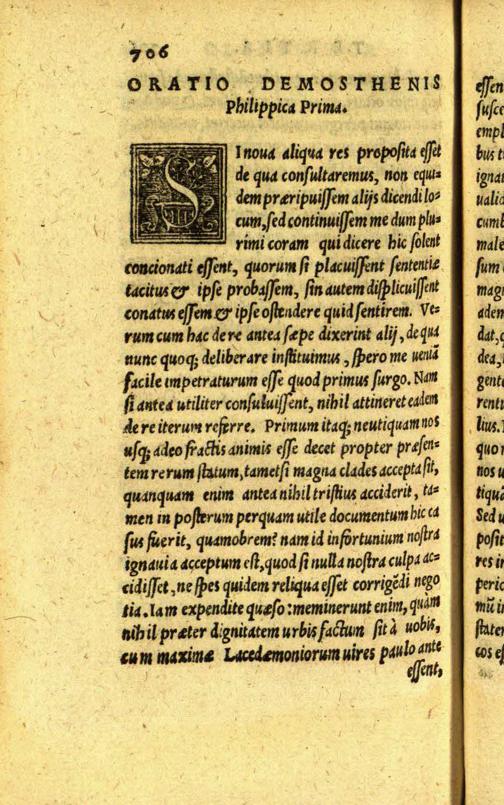 706
ORATIO DEMOSTHENIS
Philippica Prima.
SI noua aliqua res proposita esset
de qua consultaremus, non equi-
dem præripuissem alijs dicendi lo-
cum, sed continuissem me dum plu-
rimi coram qui dicere hic solent
concionati essent, quorum si placuissent sententiæ
tacitus & ipse probassem, sin autem displicuissent
conatus essem & ipse ostendere quid sentirem. Ve-
rum cum hac de re antea sæpe dixerint alij, de qua
nunc quoq; deliberare instituimus, spero me ueniā
facile impetraturum esse quod primus surgo. Nam
si antea utiliter consuluissent, nihil attineret eadem
de re iterum referre. Primum itaq; neutiquam nos
usq; adeo fractis animis esse decet propter præsen-
tem rerum statum, tametsi magna clades accepta sit,
quanquam enim antea nihil tristius acciderit, ta-
men in posterum perquam utile documentum hic ca
sus fuerit, quamobrem? nam id infortunium nostra
ignauia acceptum est, quod si nulla nostra culpa ac-
cidisset, ne spes quidem reliqua esset corrigēdi nego
tia. Iam expendite quæso: meminerunt enim, quàm
nihil præter dignitatem urbis factum sit à uobis,
cum maximæ Lacedæmoniorum uires paulo ante
essent,
essen
susce
empl
bus t
ignat
ualid
cumb
male
sum
magi
adem
dat, q
dea,
gent
rent
lius.
quo
nos u
tiquā
Sed u
posit
res in
peric
mū i
state
cos es